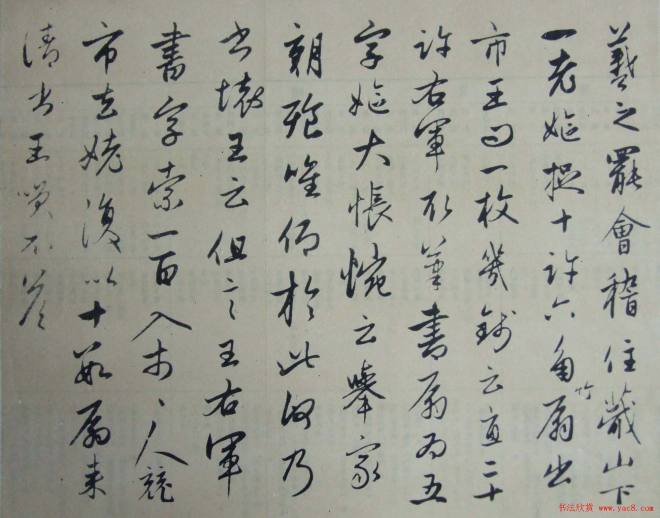 羲之罷會稽住蕺山下
一老嫗捉十許六角竹扇出
市王問一枚幾錢云直二十
許右軍取筆書扇為五
字嫗大悵惋云舉家
朝飱唯仰於此何乃
書壞王云但言王右軍
書字索一百入市市人競
市去姥復以十數扇来
請書王笑不答
书法欣赏 www.yac8.com